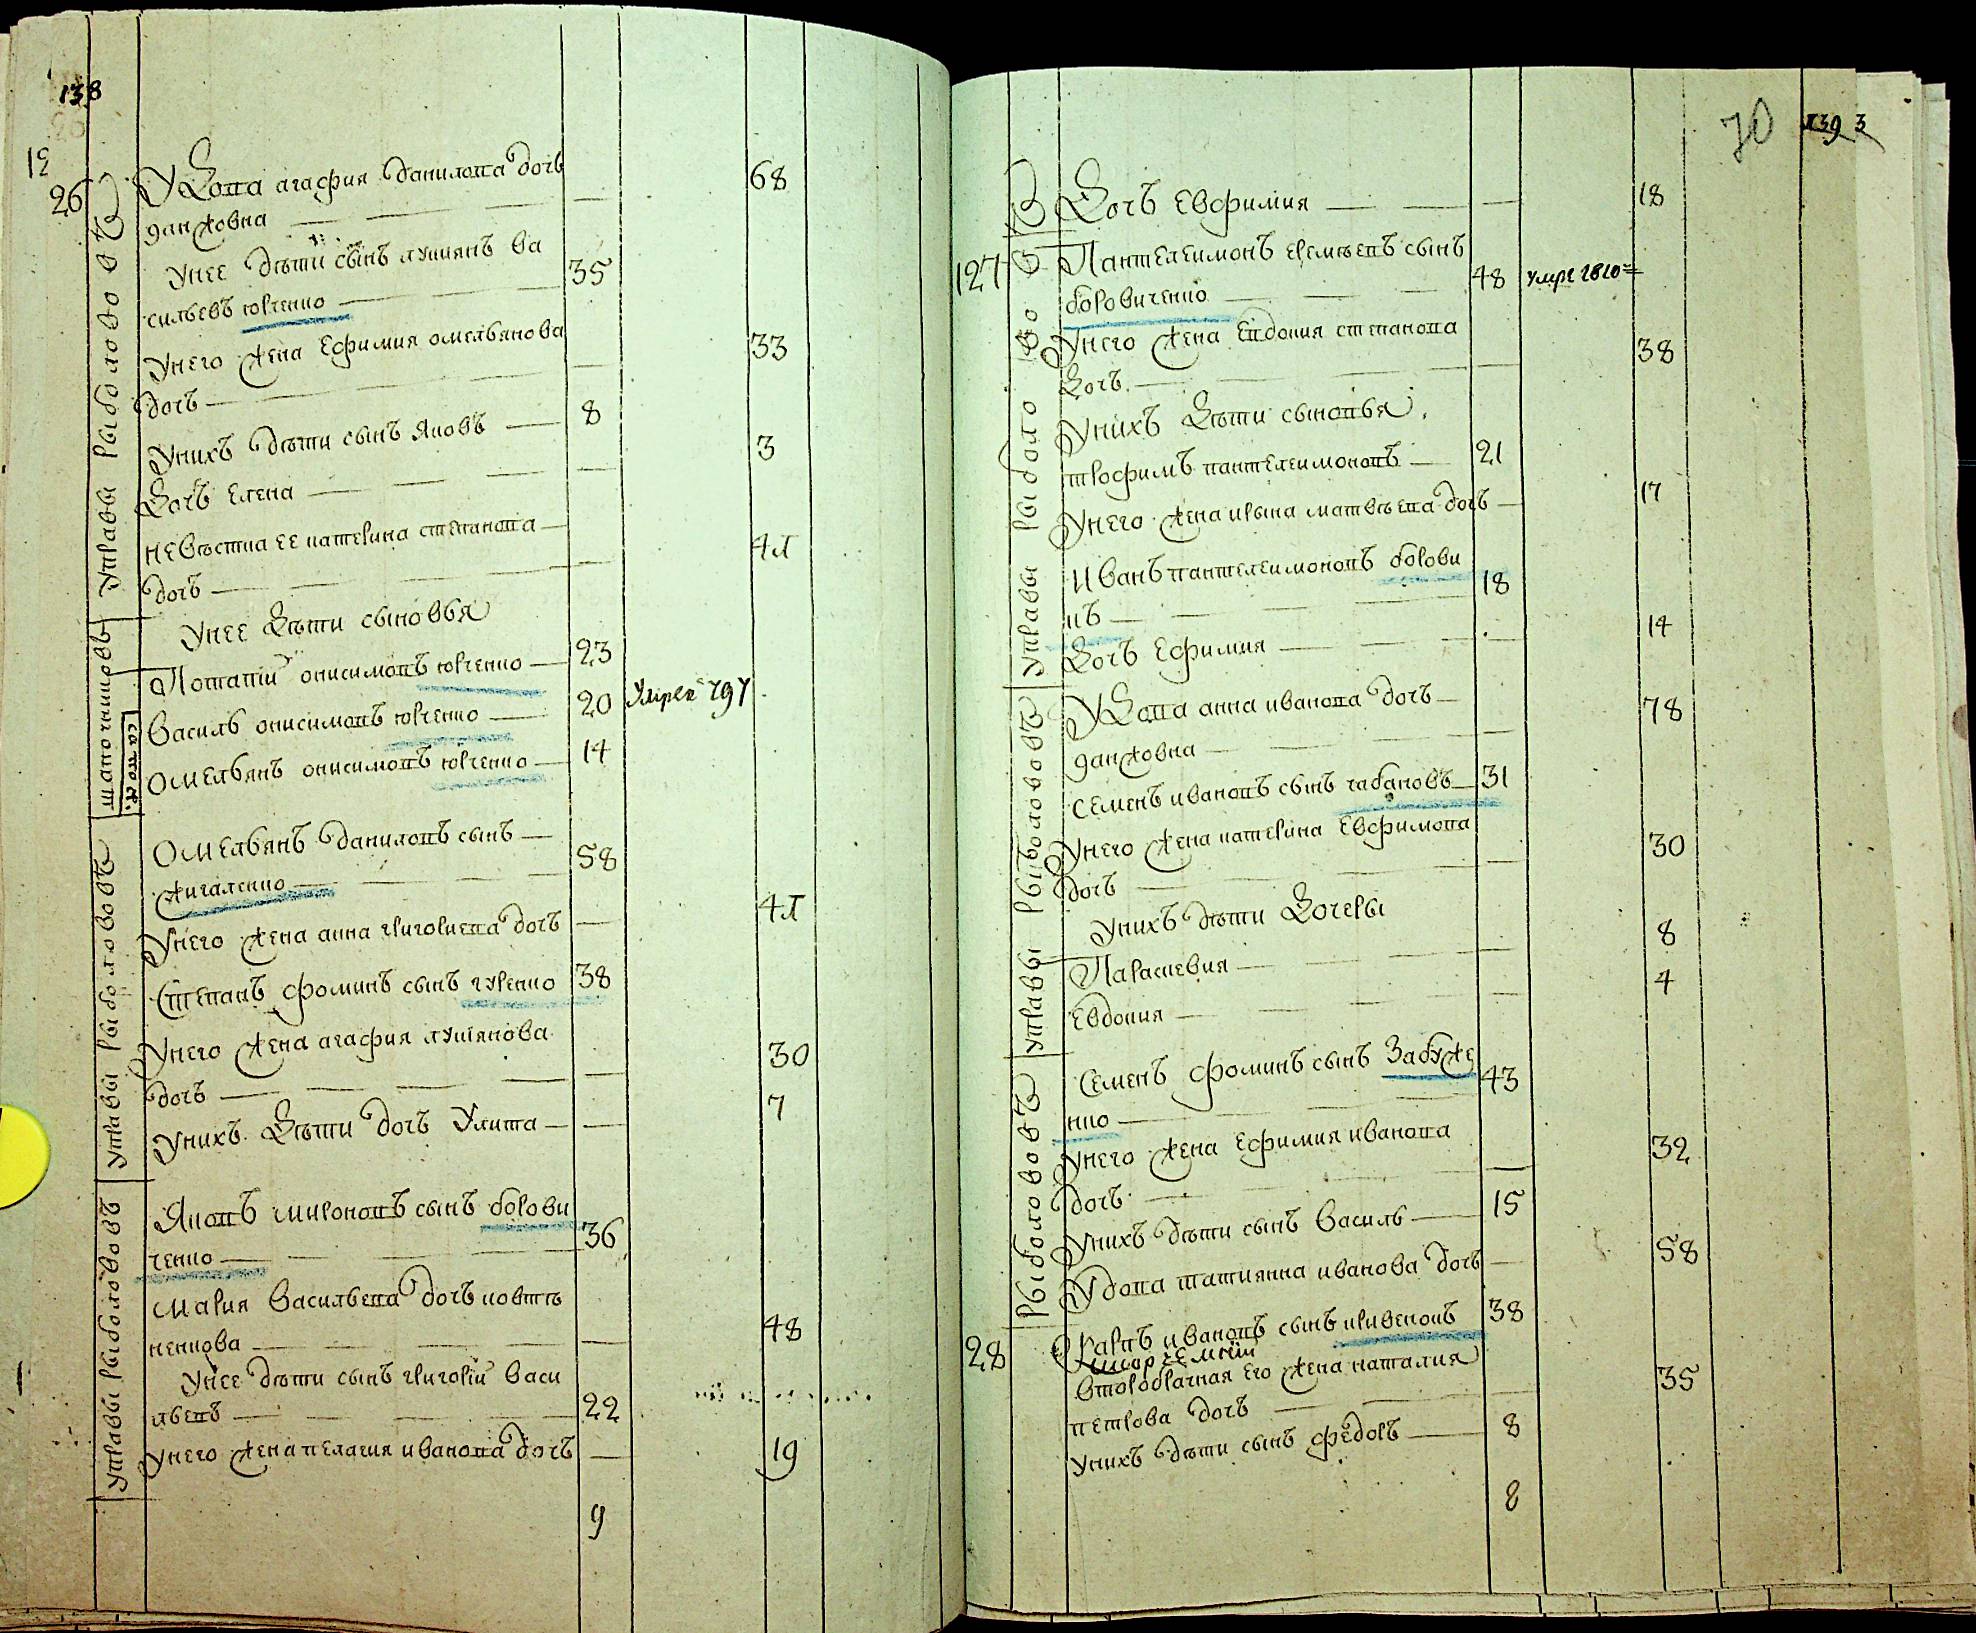 138
12
26
Удова агафия данилова дочь
ганжовна
68
унее дѣти сынъ лукиянъ ва
сильевъ юрченко
35
унего жена ефимия омельянова
дочь
33
унихъ дѣти сынъ Яковъ
8
дочь елена
3
невѣстка ее катерина степанова
дочь
41
унее дѣти сыновья
Потапiй онисимовъ юрченко
23
Василь онисимовъ юрченко
20
умре в 797
омельянъ онисимовъ юрченко
14
омельянъ даниловъ сынъ
жигаленко
58
унего жена анна григориева дочь
41
Степанъ фоминъ сынъ гуренко
38
унего жена агафия лукиянова
дочь
30
унихъ дѣти дочь Улита
7
Яковъ мироновъ сынъ борови
ченко
36
мария васильева дочь ковтѣ
ненкова
48
унее дѣти сынъ григорiй васи
льевъ
22
унего жена пелагия иванова дочь
19
9
управы рыболововъ
управы рыболововъ
управы рыболововъ
70
139
3
Дочь Евфимия
18
127
Пантелеимонъ еремѣевъ сынъ
боровиченко
48
умре 1810
унего жена евдокия степанова
дочь
38
унихъ дѣти сыновья
трофимъ пантелеимоновъ
21
унего жена ирина матвѣева дочь
17
иванъ пантелеимоновъ борови
къ
18
дочь ефимия
14
Удова анна иванова дочь
ганжовна
78
семенъ ивановъ сынъ чабановъ
31
унего жена катерина Евфимова
дочь
30
унихъ дѣти дочеры
Параскевия
8
евдокия
4
Семенъ фоминъ сынъ Забуже
нко
43
унего жена ефимия иванова
дочь
32
унихъ дѣти сынъ василь
15
Удова татиянна иванова дочь
58
28
Карпъ ивановъ сынъ кривенокъ
38
второбрачная его жена наталия
петрова дочь
35
унихъ дѣти сынъ федоръ
8
8
управы рыболово
управы рыболововъ
рыболововъ